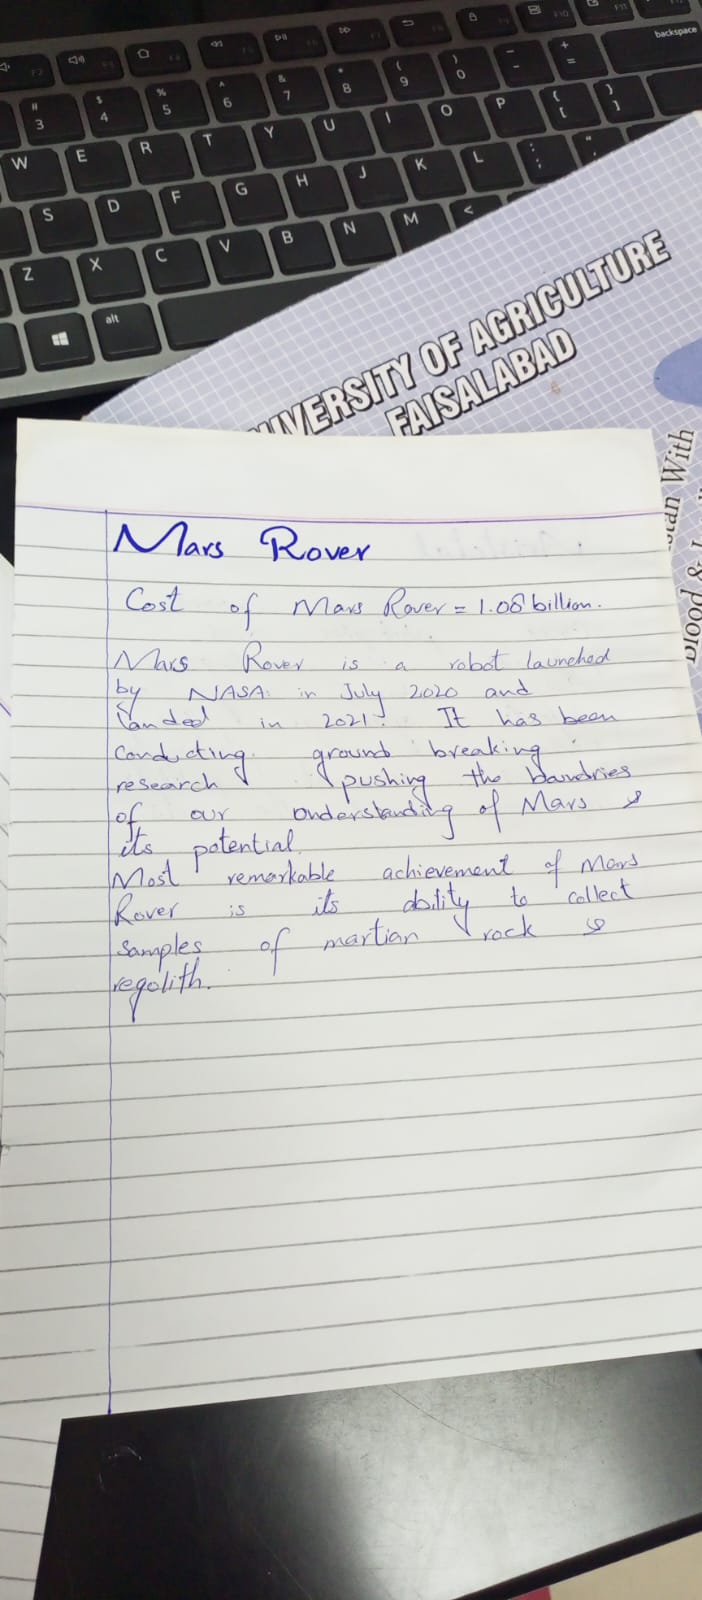 F2 F3 F4 F5 F6 F7 F8 F9 F10 F11
# 3 $ 4 % 5 ^ 6 & 7 * 8 ( 9 ) 0 - + = backspace
W E R T Y U I O P { [ } ]
S D F G H J K L : ; "
Z X C V B N M <
alt
UNIVERSITY OF AGRICULTURE
FAISALABAD
With
Blood &
Mars Rover
Cost of Mars Rover = 1.08 billion.
Mars Rover is a robot launched
by NASA in July 2020 and
landed in 2021. It has been
conducting ground breaking
research pushing the bandries
of our understanding of Mars &
its potential.
Most remarkable achievement of Mars
Rover is its ability to collect
samples of martian rock &
regolith.